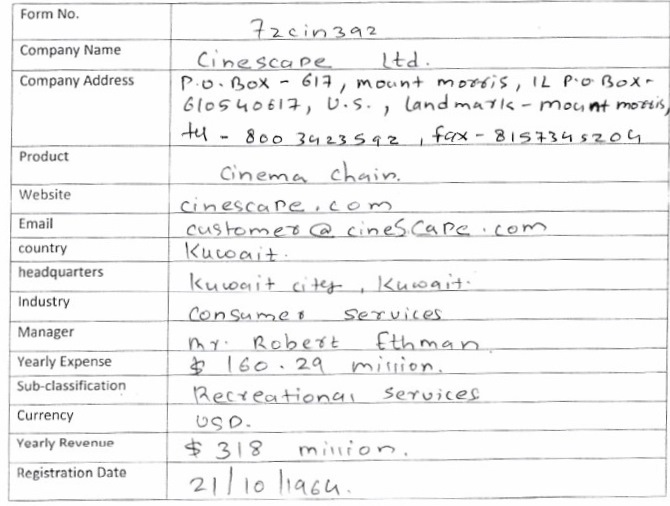 Form No. 72cin392
Company Name Cinescape Ltd.
Company Address P.O. Box - 617, mount morris, IL P.O Box-
610540617, U.S., landmark - mount morris,
tel - 800 3423592, fax - 8157345204
Product Cinema chain.
Website cinescape.com
Email customer@cinescape.com
country Kuwait.
headquarters Kuwait city, Kuwait.
Industry Consumer Services
Manager Mr. Robert Ethman
Yearly Expense $ 160.29 million.
Sub-classification Recreational Services
Currency USD.
Yearly Revenue $ 318 million.
Registration Date 21/10/1964.